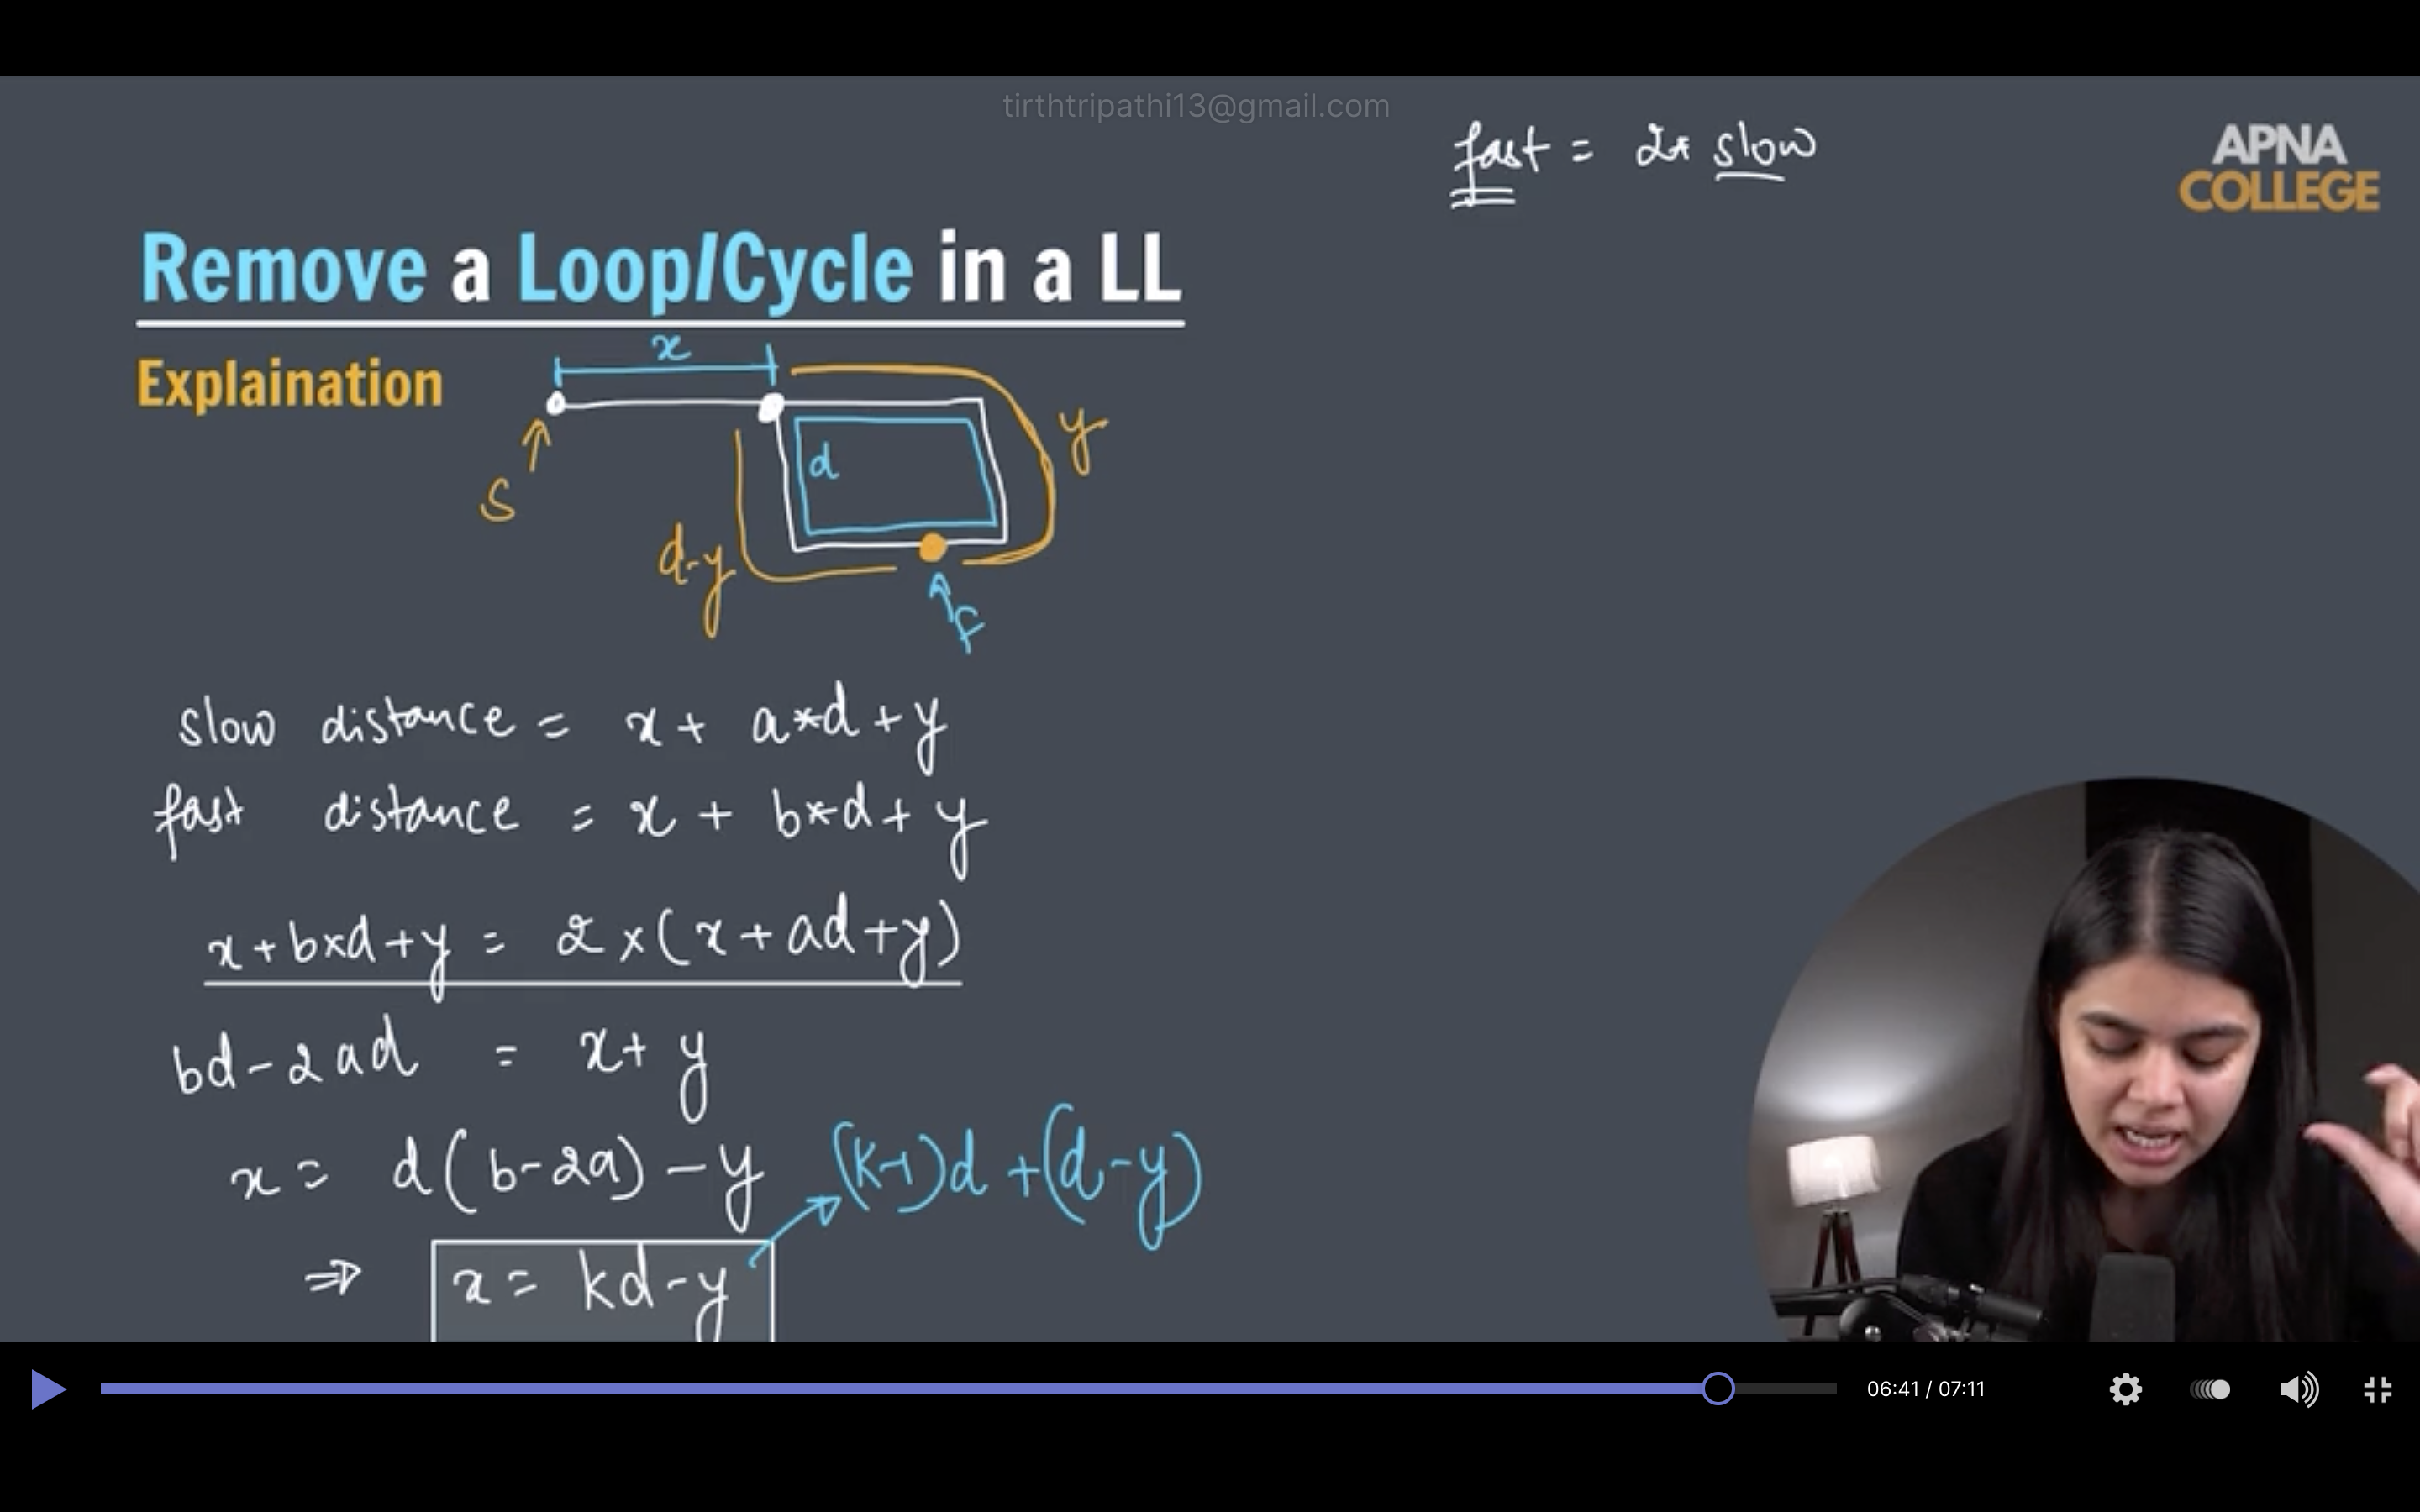 tirthtripathi13@gmail.com
fast = 2* slow
APNA
COLLEGE
Remove a Loop/Cycle in a LL
Explaination
x
y
d
S
d-y
f
slow distance = x + a*d + y
fast distance = x + b*d + y
x + b×d + y = 2 × (x + ad + y)
bd - 2ad = x + y
x = d(b - 2a) - y
(k-1)d + (d-y)
⇒ x = kd - y
06:41 / 07:11